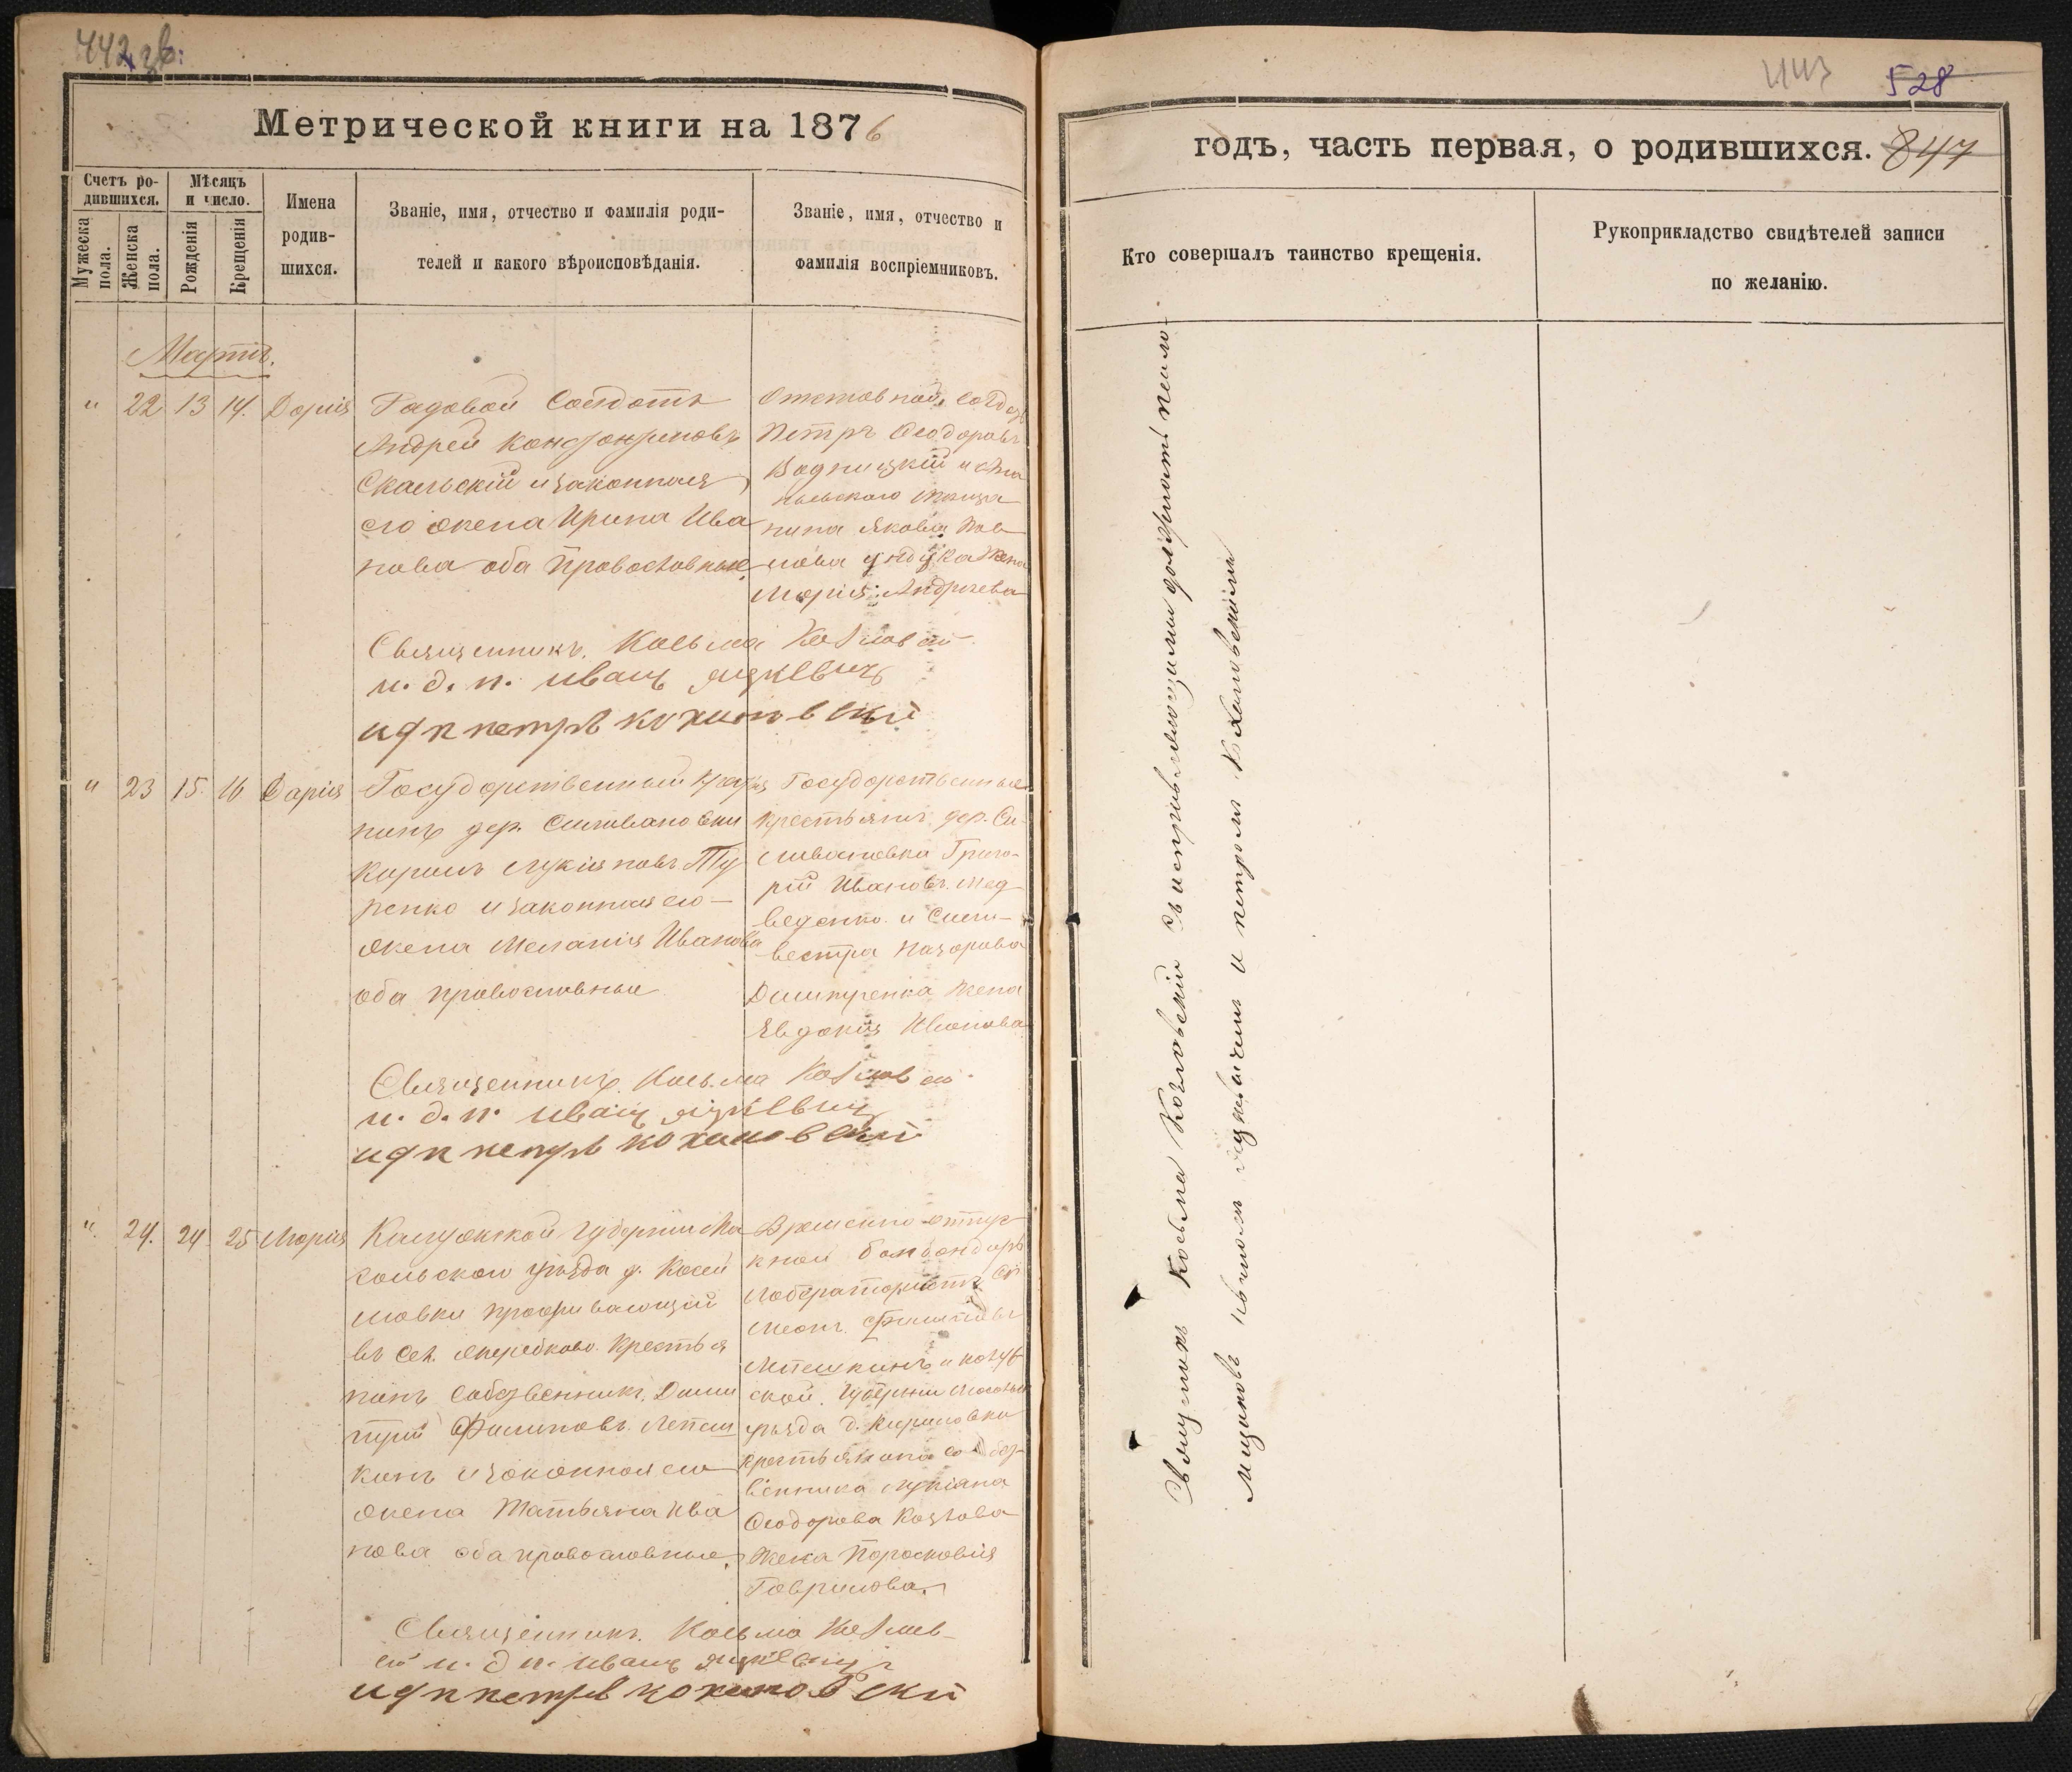 442 зв:
Метрической книги на 1876
Счетъ ро-
дившихся.
Мѣсяцъ
и число.
Мужеска
пола.
Женска
пола.
Рожденія
Крещенія
Имена
родив-
шихся.
Званіе, имя, отчество и фамилія роди-
телей и какого вѣроисповѣданія.
Званіе, имя, отчество и
фамилія воспріемниковъ.
Мартъ.
" 22 13 14. Дарія
Рядовой Солдатъ
Андрей
Скальскій и законная
его жена Ирина Ива
нова оба Православные.
Отставной Солдатъ
Петръ Ѳеодоровъ
и
нина Якова
жена
Марія Андреева
Священникъ. Косьма Козловскій
и. д. п. иванъ яцкевичъ
идп петръ кохановскій
" 23 15. 16 Дарія
Государственный Крестья
нинъ дер. Силивановки
Кирилъ Лукіяновъ Ту
ренко и законная его
жена Меланія Иванова
оба православные
Государственные
крестьянинъ дер. Си-
ливановки Григо-
рій Ивановъ. Мед-
веденко и Силь-
вестра Назарова
Дмитренка жена
Евдокія Иванова
Священникъ. Косьма Козловскій
и. д. п. иванъ яцкевичъ
идп петръ кохановскій
" 24. 24 25 Марія
Калужской Губерніи Мо
сальскаго уѣзда д.
проживающій
въ Сел. Жеребково Крестья
нинъ Собственникъ. Дими
трій Филиповъ. Лепеш
кинъ и законная его
жена Татьяна Ива
нова оба православные.
Временно-отпус-
кной бомбондиръ
Лаборатористъ Си-
меонъ Филиповъ
Лепешкинъ и калуж
ской. Губерніи Мосальск
уѣзда д. Кириловки
крестьянина собст-
венника Лукіяна
Ѳеодорова Козлова
жена Поросковія
Гаврилова.
Священникъ. Косьма Козлов-
скій и. д п. иванъ яцкевичъ
идп петръ кохановскій
443 528
годъ, часть первая, о родившихся. 847
Кто совершалъ таинство крещенія.
Рукоприкладство свидѣтелей записи
по желанію.
Священникъ Косьма Козловскій съ исправляющими должность псало-
мщиковъ иваномъ яцкевичемъ и петромъ Кохановскимъ